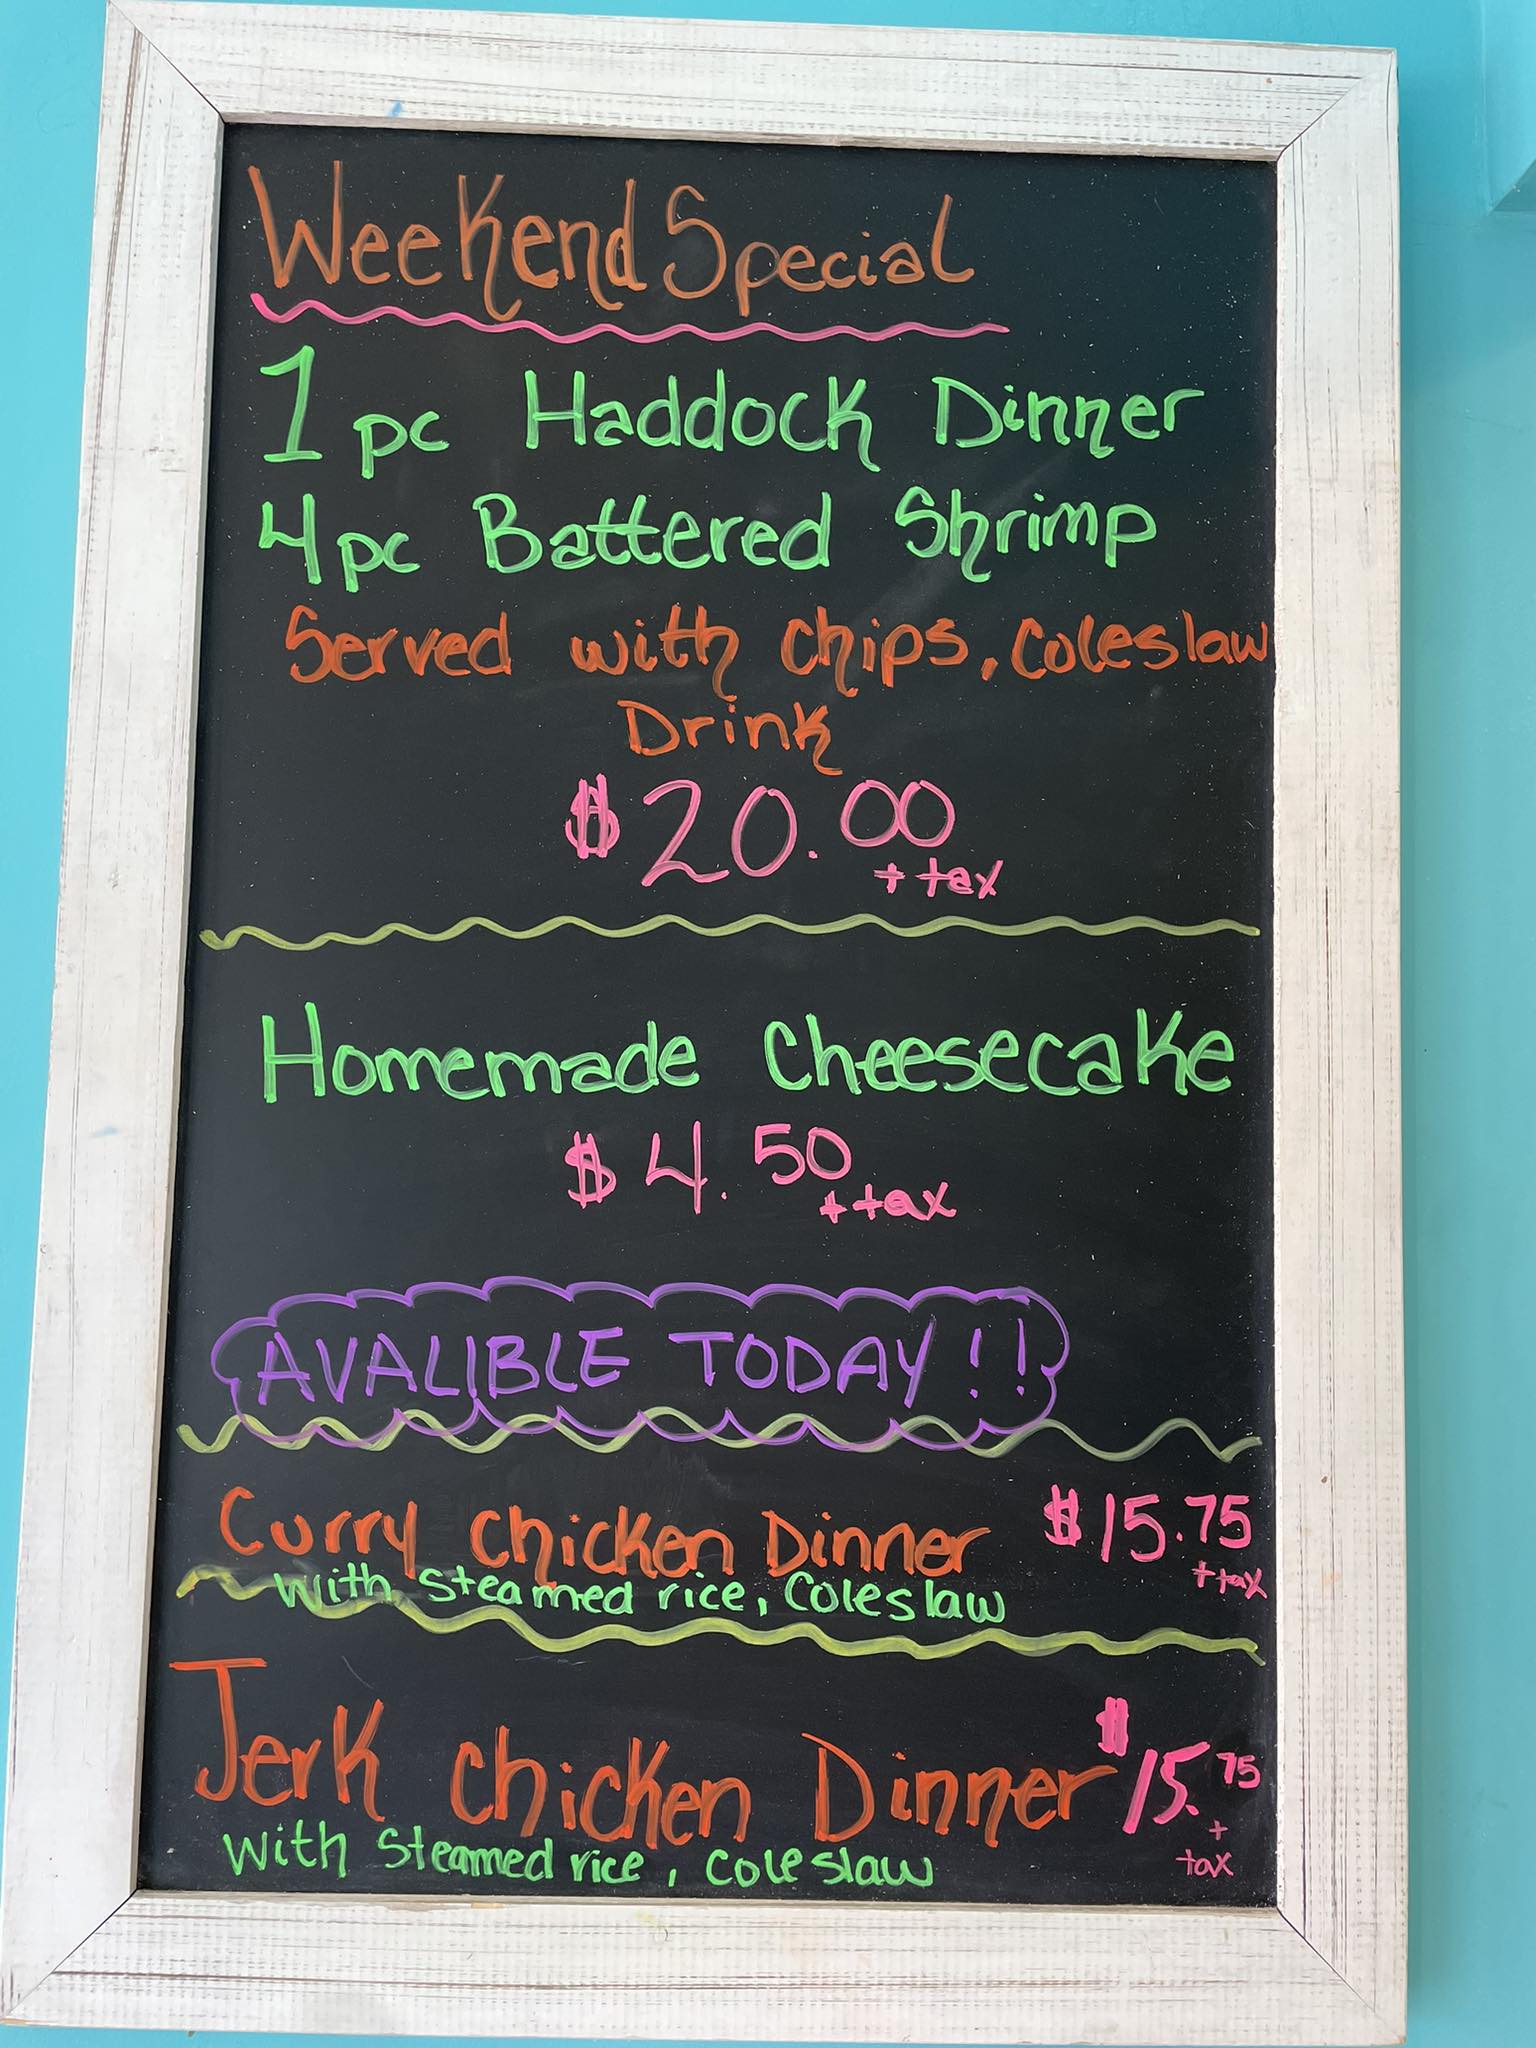 Weekend Special
1 pc Haddock Dinner
4 pc Battered Shrimp
Served with chips, Coleslaw
Drink
$20.00
+ tax
Homemade Cheesecake
$4.50
+ tax
AVALIBLE TODAY!!
Curry chicken Dinner $15.75
+ tax
with steamed rice, Coleslaw
Jerk chicken Dinner $15.75
+
tax
with steamed rice, Coleslaw